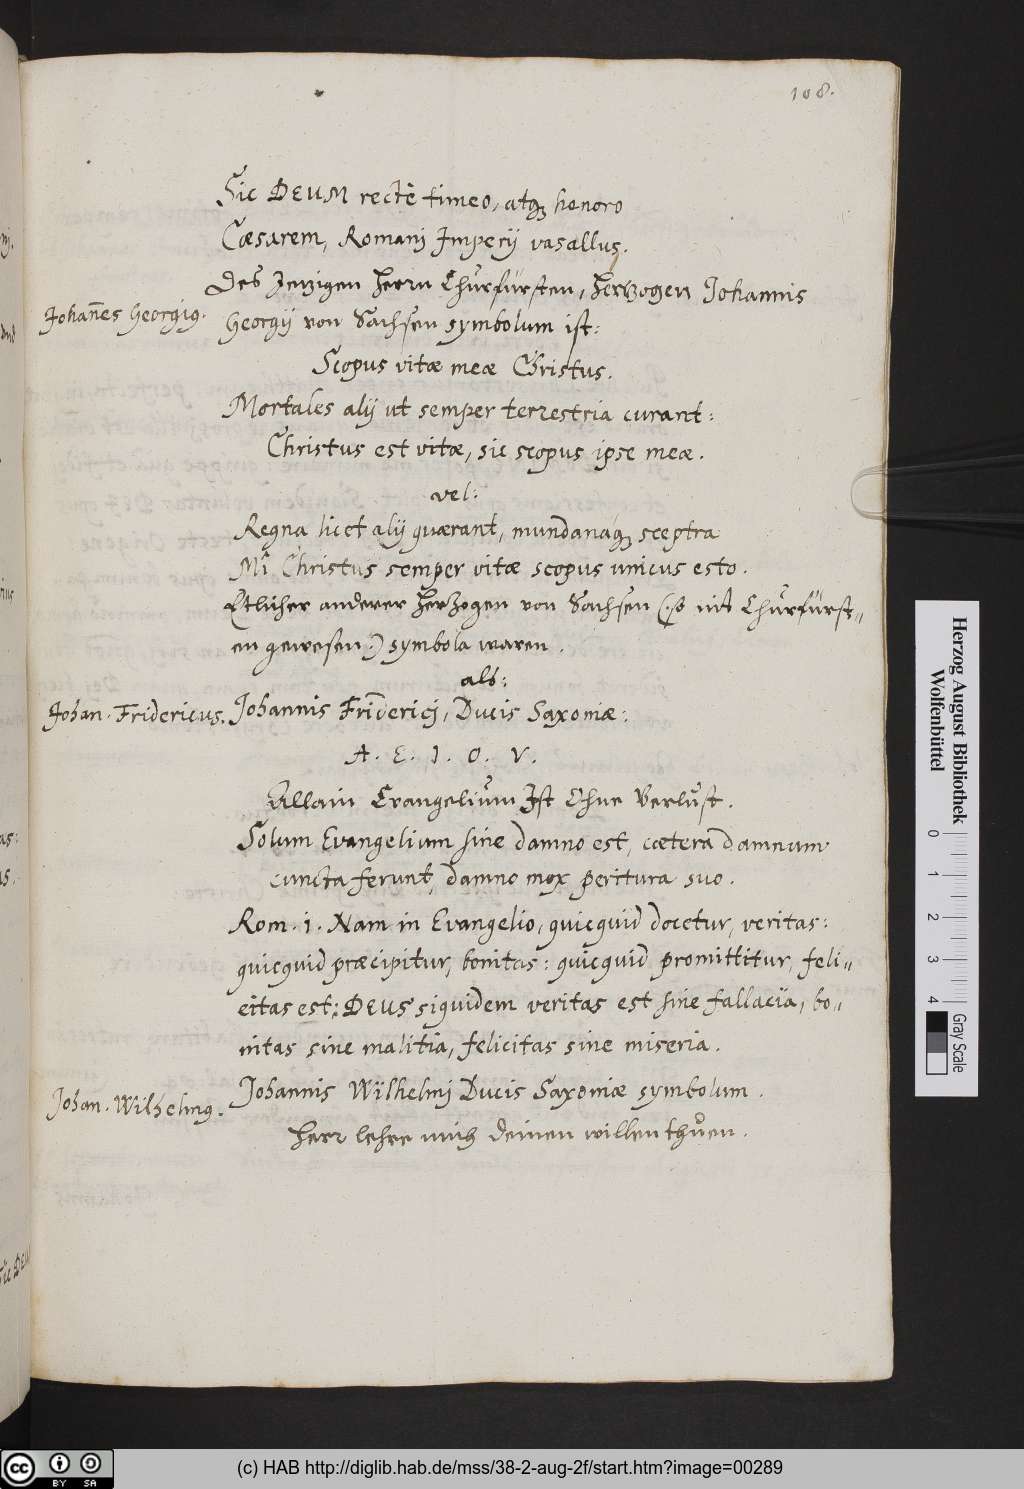 108.
Sic DEUM rectè timeo, atq₃ honoro
Cæsarem, Romanj Imperij vasallus.
Des Jetzigen Herrn Chŭrfürsten, Hertzogen Johannis
Johan̄es Georgiꝰ.
Georgij von Sachsen symbolum ist:
Scopus vitæ meæ Christus.
Mortales alij ut semper terrestria curant:
Christus est vitæ, sic scopus ipse meæ.
vel:
Regna licet alij quærant, mundanaq₃ sceptra
Mî Christus semper vitæ scopus unicus esto.
Etlicher anderer Hertzogen von Sachsen (:so nit Chŭrfürst=
en gewesen:) symbola waren.
als:
Johan. Fridericus.
Johannis Friderici, Ducis Saxoniæ:
A. E. I. O. V.
Allain Evangeliŭm Ist Ohne Verlŭst.
Solum Evangelium sine damno est, cætera damnum
cuncta ferunt, damno mox peritura suo.
Rom. i. Nam in Evangelio, quicquid docetur, veritas:
quicquid præcipitur, bonitas: quicquid promittitur, feli=
citas est: DEUS siquidem veritas est sine fallacia, bo=
nitas sine malitia, felicitas sine miseria.
Johan. Wilhelmꝰ.
Johannis Wilhelmj Ducis Saxoniæ symbolum.
Herr lehre mich deinen willen thŭen.
Herzog August Bibliothek
Wolfenbüttel
0 1 2 3 4
Gray Scale
(c) HAB http://diglib.hab.de/mss/38-2-aug-2f/start.htm?image=00289
cc BY SA